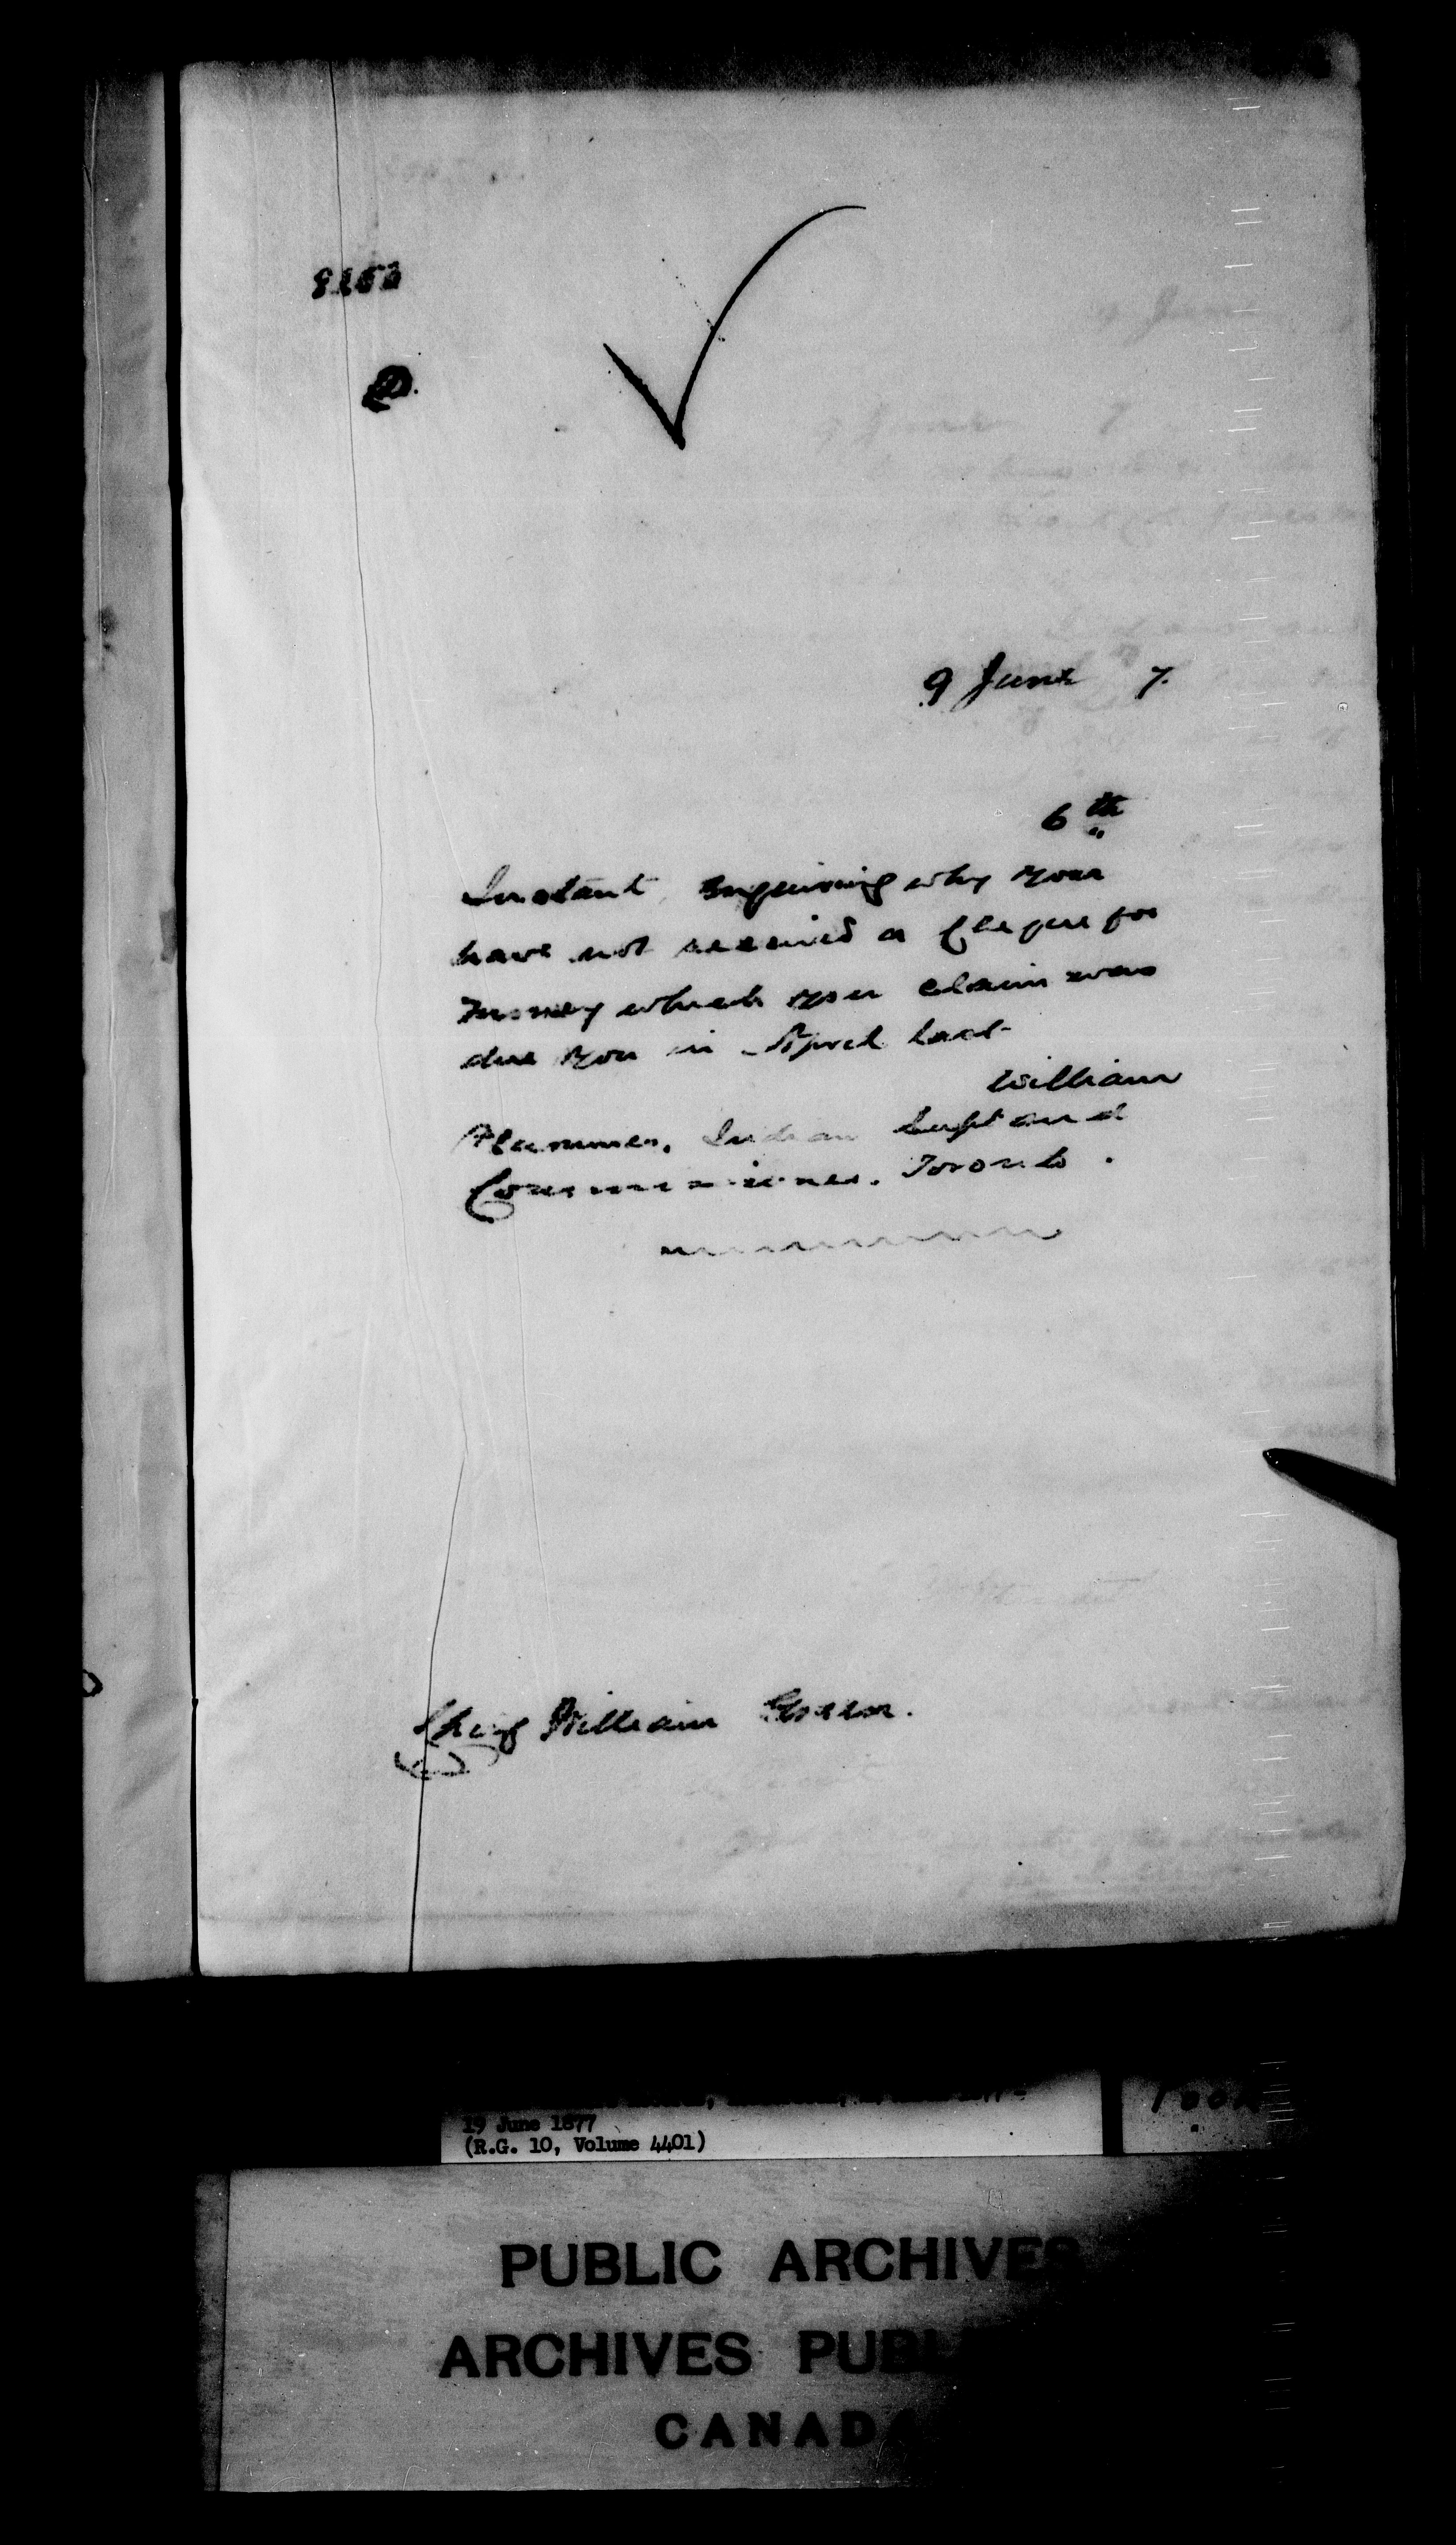 9 June 7.
6th
Instant, inquiring why you
have not received a Cheque for
money which you claim was
due you in April last
William
Plummer, Indian Supt and
Commissioner. Toronto.
Chief William Green.
19 June 1877
(R.G. 10, Volume 4401)
PUBLIC ARCHIVES
ARCHIVES PUBL
CANADA